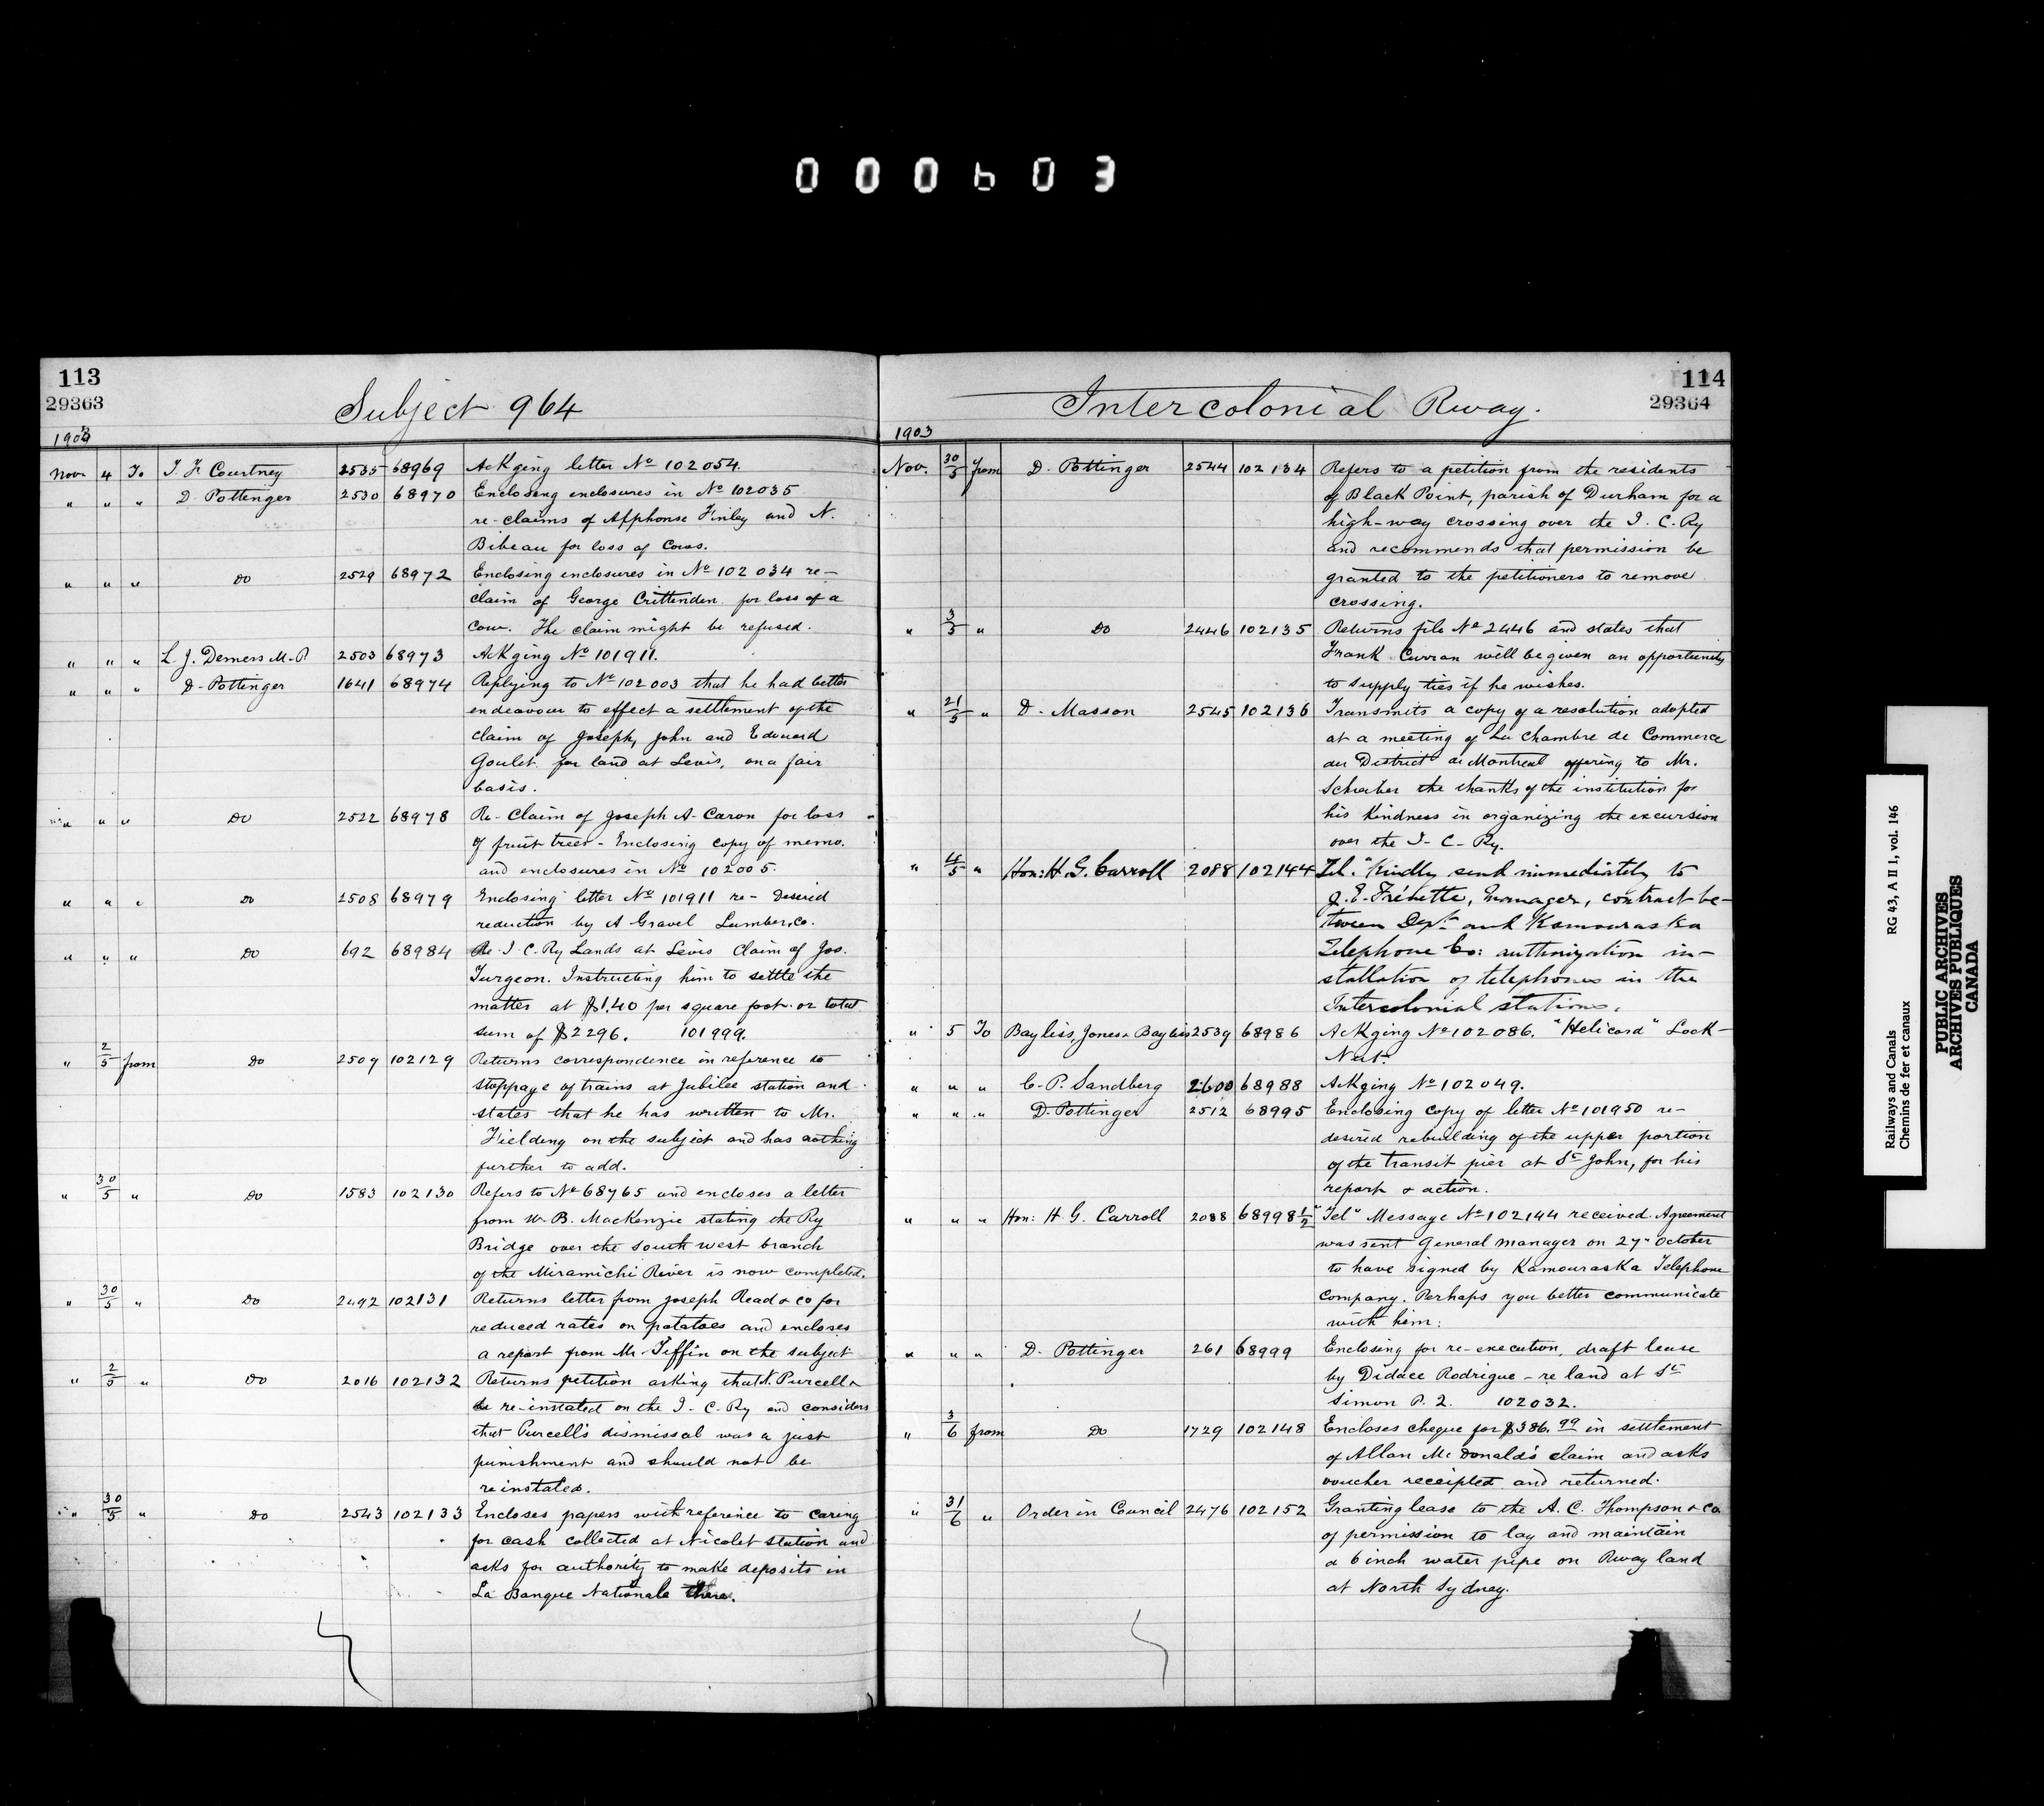 000603
113
29363
Subject 964
1903
Nov 4 To T. F. Courtney 2535 68969 Ackging letter No 102054.
" " " D. Pottinger 2530 68970 Enclosing enclosures in No 102035
re-claims of Alphonse Finley and N.
Bibeau for loss of Cows.
" " " Do 2529 68972 Enclosing enclosures in No 102034 re-
claim of George Crittenden for loss of a
cow. The claim might be refused.
" " " L. J. Demers M.P. 2503 68973 Ackging No 101911.
" " " D. Pottinger 1641 68974 Replying to No 102003 that he had better
endeavour to effect a settlement of the
claim of Joseph, John and Edouard
Goulet for land at Levis, on a fair
basis.
" " " Do 2522 68978 Re-Claim of Joseph A. Caron for loss
of fruit trees - Enclosing copy of memo.
and enclosures in No 102005.
" " " Do 2508 68979 Enclosing letter No 101911 re- Desired
reduction by A Gravel Lumber Co.
" " " Do 692 68984 Re I. C. Ry Lands at Levis Claim of Jos.
Turgeon. Instructing him to settle the
matter at $1.40 per square foot or total
sum of $2296. 101999.
" 2/5 from Do 2509 102129 Returns correspondence in reference to
stoppage of trains at Jubilee station and
states that he has written to Mr.
Fielding on the subject and has nothing
further to add.
" 30/5 " Do 1583 102130 Refers to No 68765 and encloses a letter
from W. B. MacKenzie stating the Ry
Bridge over the south west branch
of the Miramichi River is now completed.
" 30/5 " Do 2492 102131 Returns letter from Joseph Read & Co for
reduced rates on potatoes and encloses
a report from Mr Tiffin on the subject
" 2/5 " Do 2016 102132 Returns petition asking that Purcell
be re-instated on the I. C. Ry and considers
that Purcell's dismissal was a just
punishment and should not be
reinstated.
" 30/5 " Do 2543 102133 Encloses papers with reference to caring
for cash collected at Nicolet station and
asks for authority to make deposits in
La Banque Nationale there.
114
29364
Intercolonial Rway.
1903
Nov. 30/5 from D. Pottinger 2544 102134 Refers to a petition from the residents
of Black Point, parish of Durham for a
high-way crossing over the I. C. Ry
and recommends that permission be
granted to the petitioners to remove
crossing.
" 3/5 " Do 2446 102135 Returns file No 2446 and states that
Frank Curran will be given an opportunity
to supply ties if he wishes.
" 21/5 " D. Masson 2545 102136 Transmits a copy of a resolution adopted
at a meeting of La Chambre de Commerce
du District de Montreal offering to Mr.
Schreiber the thanks of the institution for
his kindness in organizing the excursion
over the I. C. Ry.
" 4/5 " Hon: H. G. Carroll 2088 102144 Tel. "Kindly send immediately to
J. E. Fréhette, manager, contract be-
tween Dept and Kamouraska
Telephone Co: authorization in-
stallation of telephones in the
Intercolonial stations.
" 5 To Bayliss, Jones & Bayliss 2539 68986 Ackging No 102086. "Helicord" Lock-
Nut.
" " " C. P. Sandberg 2600 68988 Ackging No 102049.
" " " D. Pottinger 2512 68995 Enclosing copy of letter No 101950 re-
desired rebuilding of the upper portion
of the transit pier at St John, for his
report & action.
" " " Hon: H. G. Carroll 2088 68998½ "Tel" Message No 102144 received. Agreement
was sent General Manager on 27" October
to have signed by Kamouraska Telephone
Company. Perhaps you better communicate
with him:
" " " D. Pottinger 261 68999 Enclosing for re-execution, draft lease
by Didace Rodrigue - re land at St
Simon P. Q. 102032.
" 3/6 from Do 1729 102148 Encloses cheque for $386.99 in settlement
of Allan McDonald's claim and asks
voucher receipted and returned.
" 31/6 " Order in Council 2476 102152 Granting lease to the A. C. Thompson & Co
of permission to lay and maintain
a 6 inch water pipe on Rway land
at North Sydney.
Railways and Canals RG 43, A II 1, vol. 146
Chemins de fer et canaux
PUBLIC ARCHIVES
ARCHIVES PUBLIQUES
CANADA